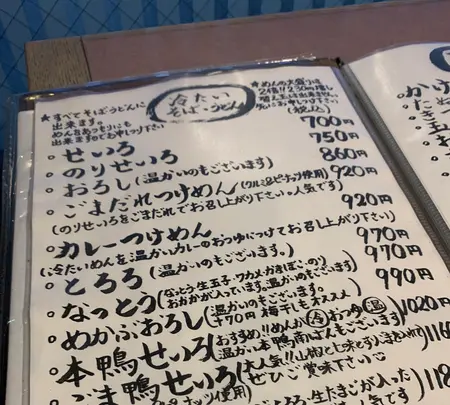 冷たい
そば・うどん
★すべてそばうどんに
出来ます。
出来ますのでお申しつけ下さい
★めんの大盛りは
(税込)
・せいろ 700円
・のりせいろ 750円
・おろし(温かいのもございます) 860円
・ごまだれつけめん(クルミ&ピーナッツ使用) 920円
(のりせいろをごまだれでお召し上がり下さい。人気です)
・カレーつけめん 920円
(冷たいめんを温かいカレーのおつゆにつけてお召し上がり下さい)
・とろろ(温かいのもございます。) 970円
・なっとう(なっとう・生玉子・ワカメ・かまぼこ・のり 970円
おおかが入っています。温かいのもございます。
・めかぶおろし(温かいのもございます。 990円
+70円 梅干しもオススメ
・本鴨せいろ(おすすめ!!めんが冷おつゆ温 1020円
温かい本鴨南ばんもございます)
・ごま鴨せいろ(大人気!!
ぜひご賞味下さい
ナッツ使用)
生たまごが入った
かけ
たき
玉